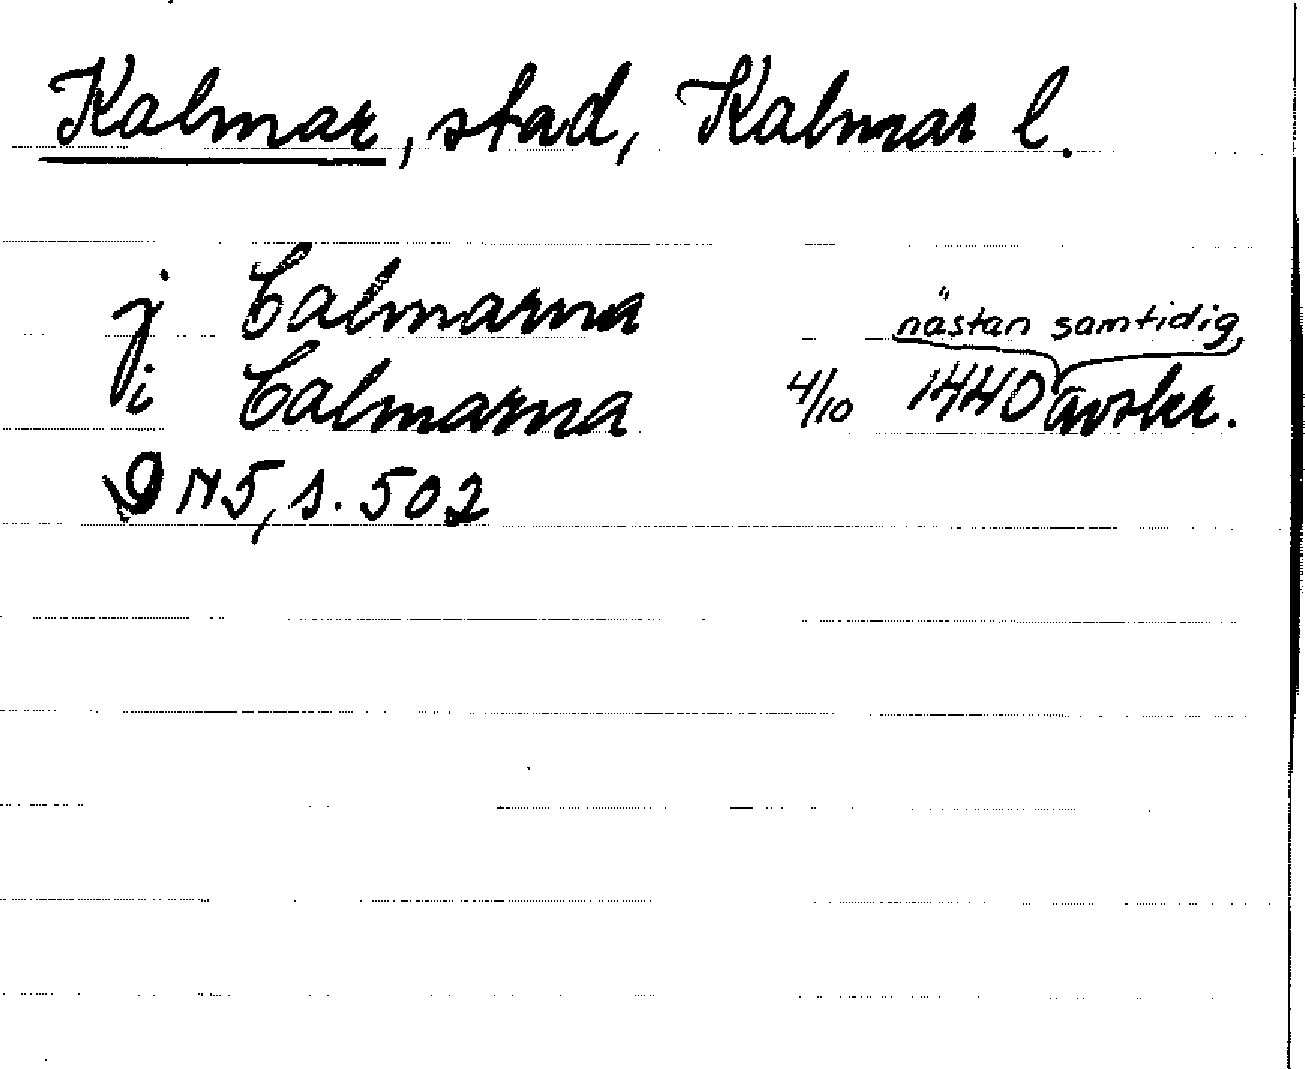 Kalmar, stad, Kalmar l.
j Calmarna
nästan samtidig
i Calmarna 4/10 1440 avskr.
DN5, s. 502